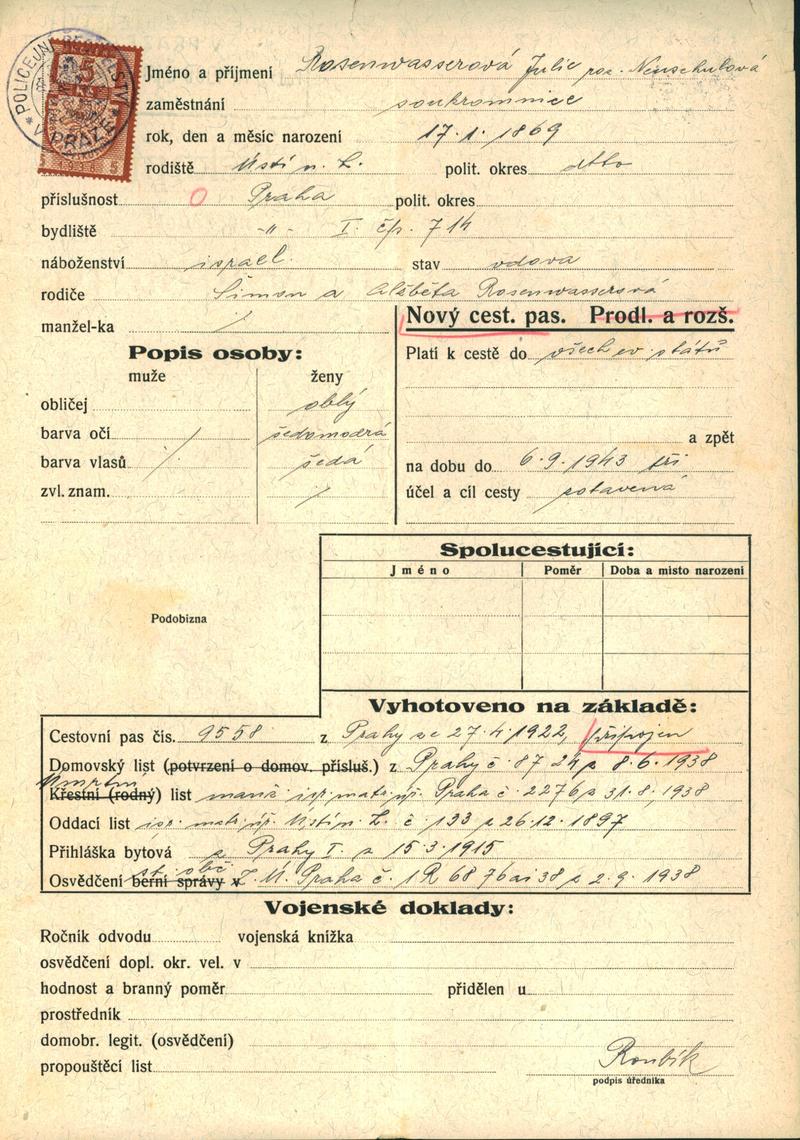 POLICEJNÍ V PRAZE
5
Kč
5 5
Jméno a příjmení Rosenwasserová Julie roz. Neuschulová
zaměstnání soukromnice
rok, den a měsíc narození 17. 1. 1869
rodiště Ústí n. L. polit. okres dtto
příslušnost O Praha polit. okres
bydliště -"- I. čp. 714
náboženství israel. stav vdova
rodiče Šimon a Alžběta Rosenwasserová
manžel-ka /
Nový cest. pas. Prodl. a rozš.
Popis osoby:
muže ženy
obličej oblý
barva očí šedomodrá
barva vlasů / šedá
zvl. znam. /
Platí k cestě do všech ev. států
a zpět
na dobu do 6. 9. 1943 tři
účel a cíl cesty zotavená
Spolucestující:
Jméno Poměr Doba a místo narození
Podobizna
Vyhotoveno na základě:
Cestovní pas čís. 9558 z Prahy ze 27. 4. 1922, připojen
Domovský list (potvrzení o domov. přísluš.) z Prahy č. 87 24 z 8. 6. 1938
Úmrtní
Křestní (rodný) list manž. isr. matr. úř. Praha č. 2276 z 31. 8. 1938
Oddací list isr. matr. úř. Ústí n. L. č. 133 z 26. 12. 1897
Přihláška bytová z Prahy I. z 15. 3. 1915
st. obč.
Osvědčení berní správy v Z. Ú. Praha č. 1R 68 76 ai 38 z 2. 9. 1938
Vojenské doklady:
Ročník odvodu vojenská knížka
osvědčení dopl. okr. vel. v
hodnost a branný poměr přidělen u
prostředník
domobr. legit. (osvědčení)
propouštěcí list
Roubík
podpis úředníka